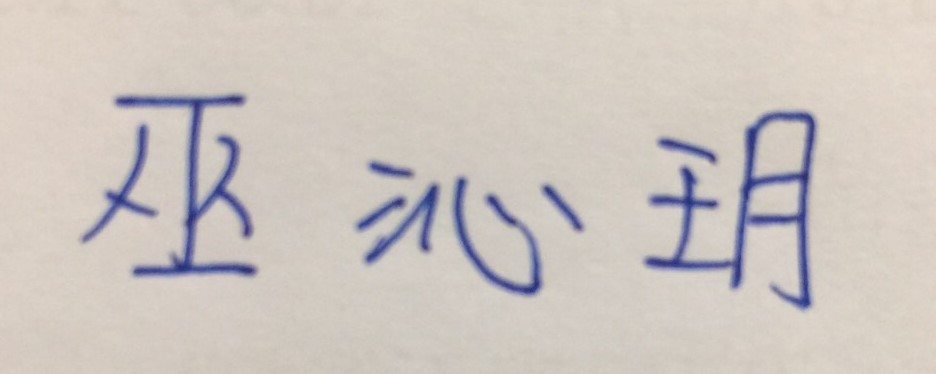 巫沁玥